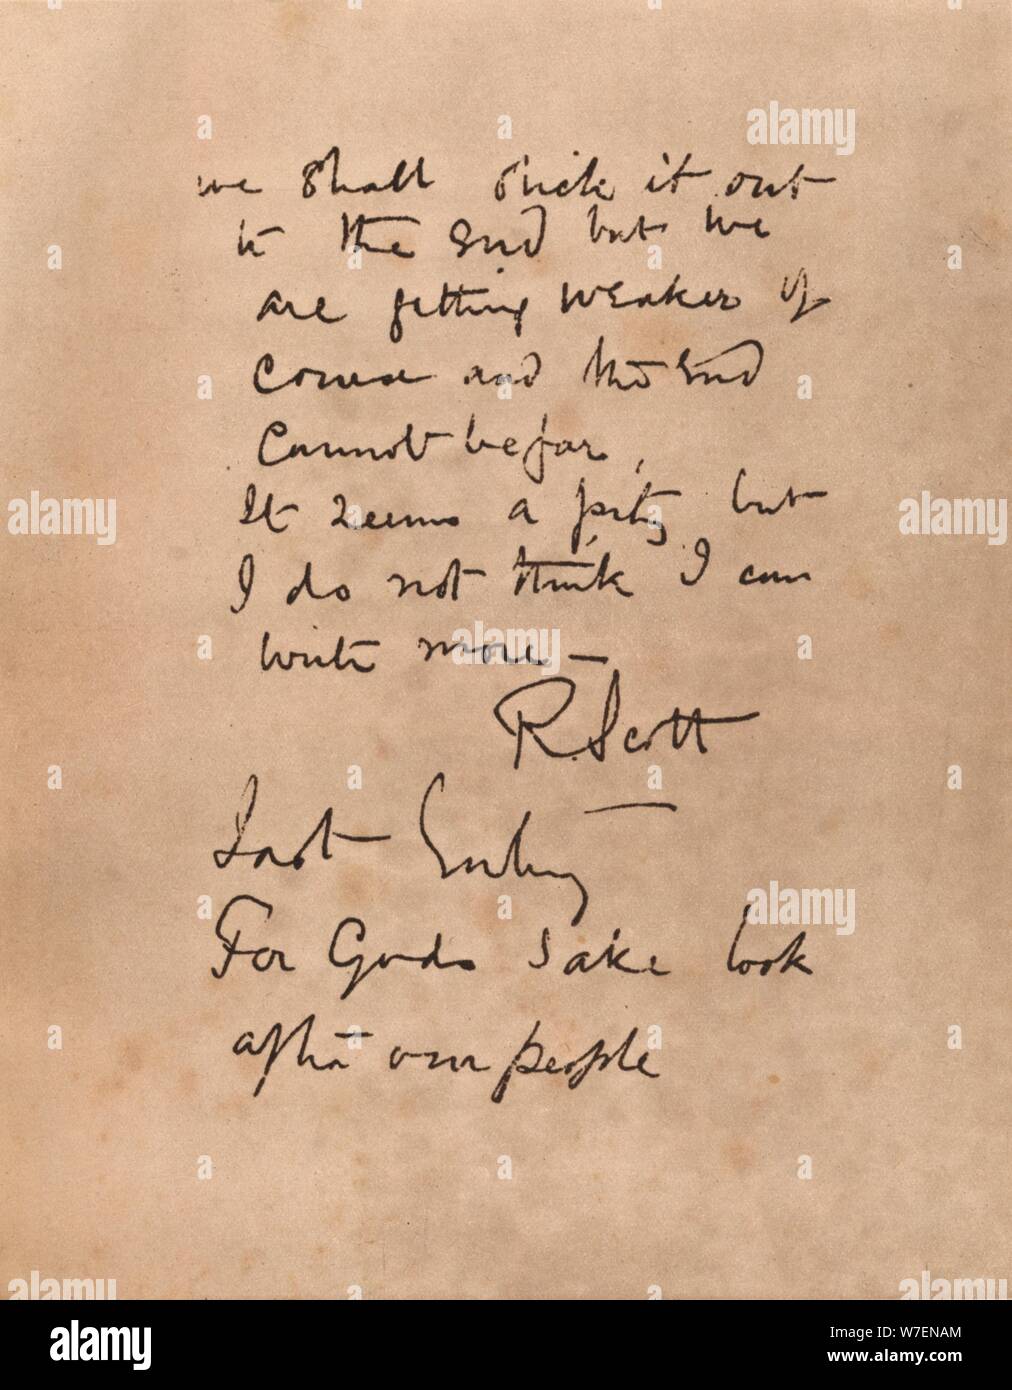 we shall stick it out
to the end but we
are getting weaker of
course and the end
cannot be far.
It seems a pity but
I do not think I can
write more —
R. Scott
Last Entry
For Gods sake look
after our people
alamy
alamy
Image ID: W7ENAM
www.alamy.com